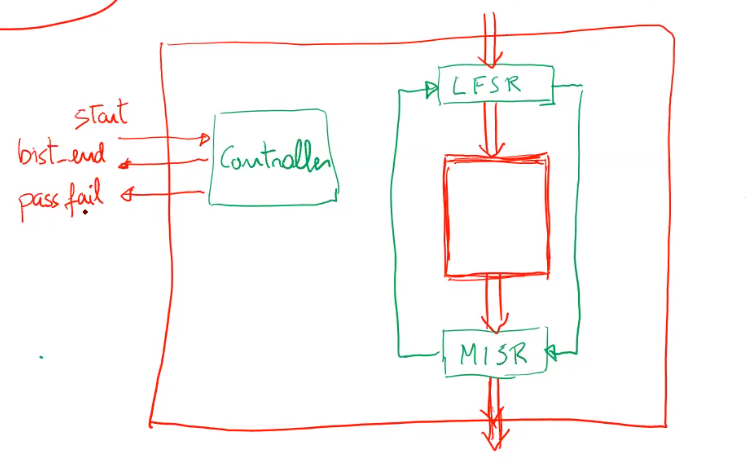 start
bist_end
pass fail
Controller
LFSR
MISR